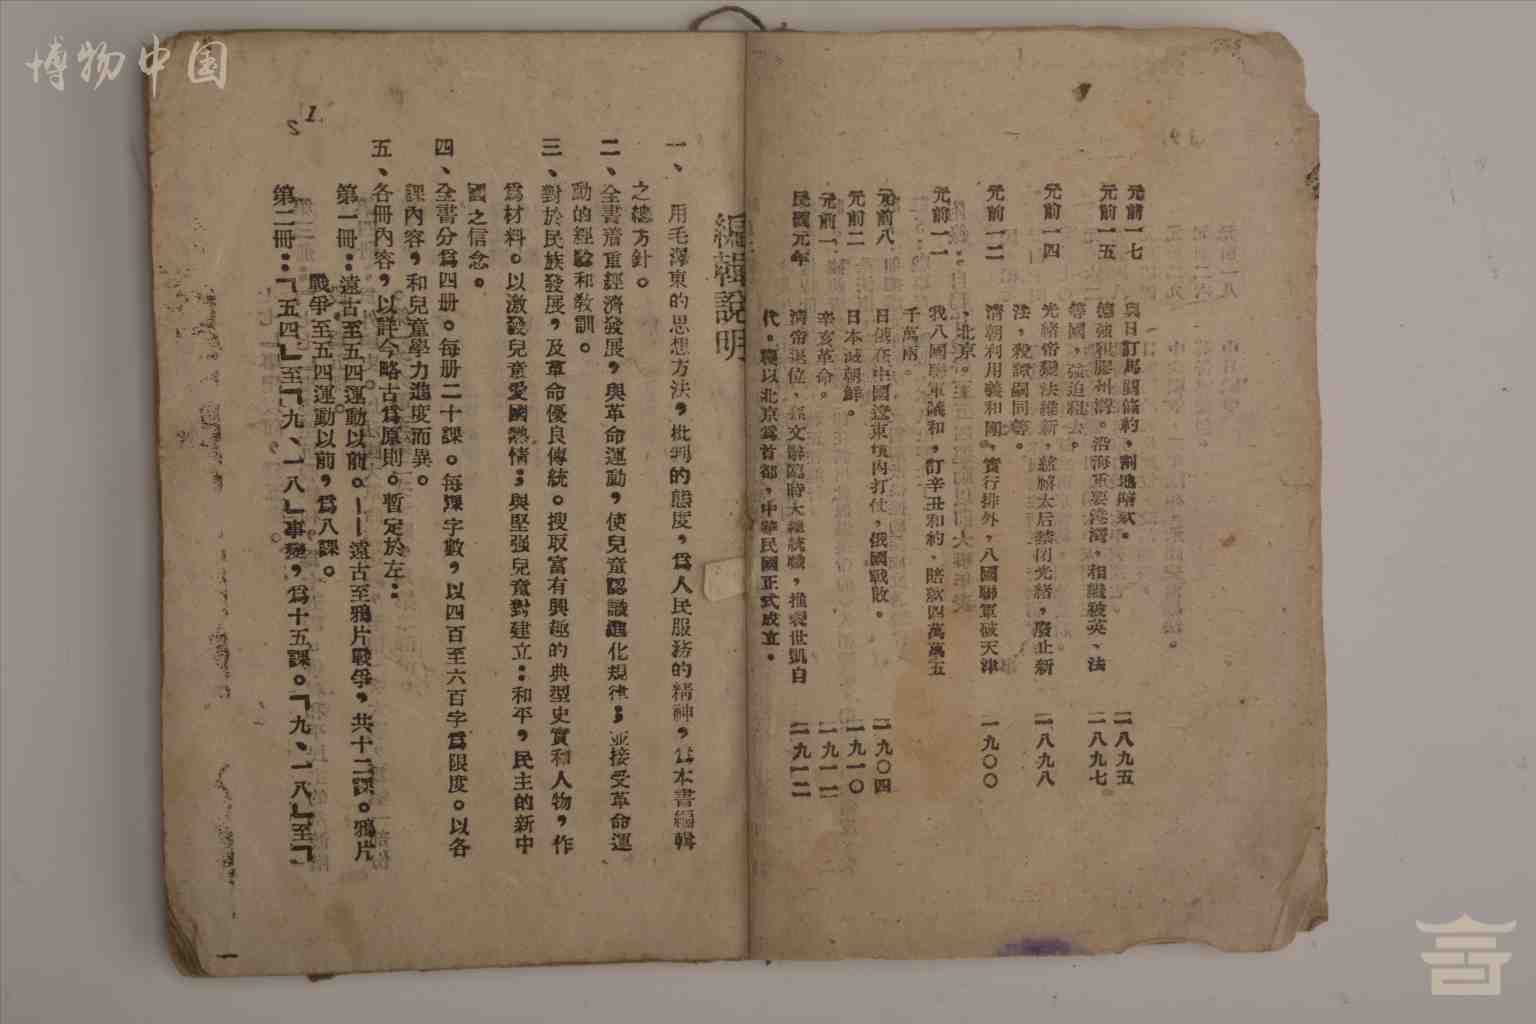 博物中国
元前一七
與日訂馬關條約,割地賠款。
一八九五
元前一五
德強租膠州灣。沿海重要港灣,相繼被英、法
等國,強迫租去。
一八九七
元前一四
光緒帝變法維新,慈禧太后禁閉光緒,廢止新
法,殺譚嗣同等。
一八九八
元前一二
清朝利用義和團,實行排外,八國聯軍破天津
、北京。
一九〇〇
元前一一
我八國聯軍議和,訂辛丑和約,賠款四萬萬五
千萬兩。
元前八
日俄在中國遼東境內打仗,俄國戰敗。
一九〇四
元前二
日本滅朝鮮。
一九一〇
元前一
辛亥革命。
一九一一
民國元年
清帝退位,孫文辭臨時大總統職,推袁世凱自
代。襲以北京為首都,中華民國正式成立。
一九一二
編輯說明
一、用毛澤東的思想方法,批判的態度,爲人民服務的精神,爲本書編輯
之總方針。
二、全書著重經濟發展,與革命運動,使兒童認識進化規律;並接受革命運
動的經驗和教訓。
三、對於民族發展,及革命優良傳統。搜取富有興趣的典型史實和人物,作
爲材料。以激發兒童愛國熱情;與堅强兒童對建立:和平,民主的新中
國之信念。
四、全書分爲四册。每册二十課。每課字數,以四百至六百字爲限度。以各
課內容,和兒童學力進度而異。
五、各冊內容,以詳今略古爲原則。暫定於左:
第一冊:遠古至五四運動以前。——遠古至鴉片戰爭,共十二課。鴉片
戰爭至五四運動以前,爲八課。
第二冊:「五四」至「九、一八」事變,爲十五課。「九、一八」至「
一
1
2